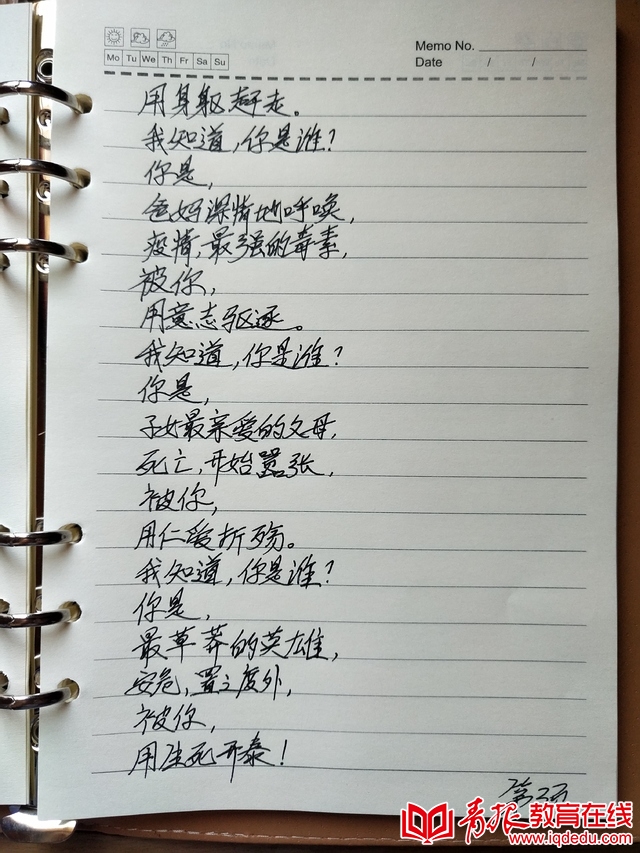 Mo Tu We Th Fr Sa Su
Memo No.
Date / /
用身躯赶走。
我知道,你是谁?
你是,
爸妈深情地呼唤,
疫情,最强的毒素,
被你,
用意志驱逐。
我知道,你是谁?
你是,
子女最亲爱的父母,
死亡,开始嚣张,
被你,
用仁爱折殇。
我知道,你是谁?
你是,
最草莽的英雄,
安危,置之度外,
被你,
用生死开泰!
青报教育在线
www.iqdedu.com